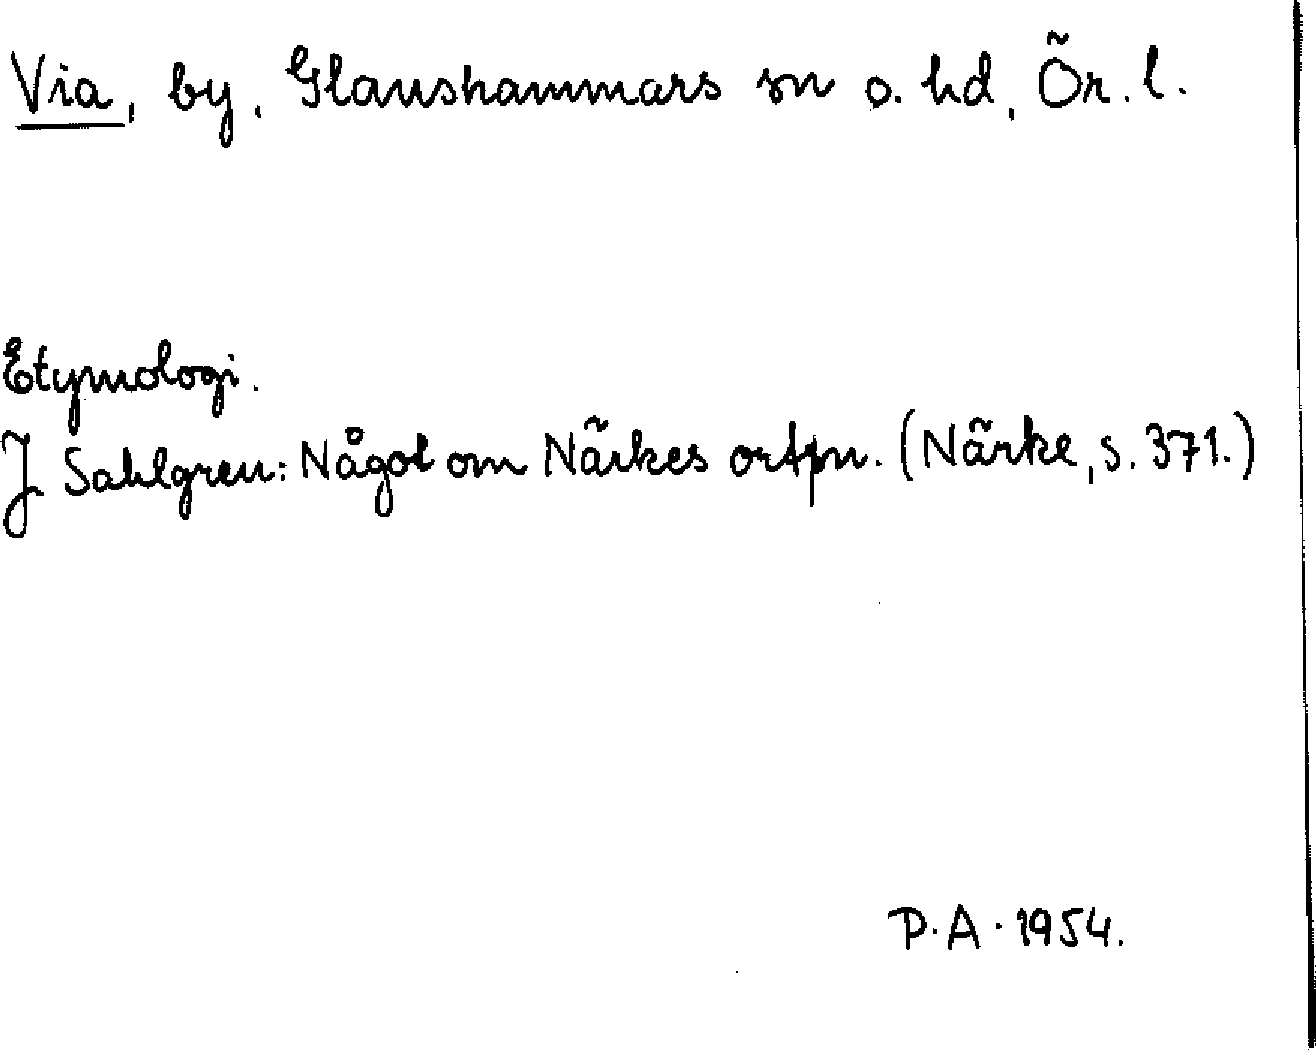 Via, by, Glanshammars sn o. hd, Ör. l.
Etymologi.
J Sahlgren: Något om Närkes ortpn. (Närke, s. 371.)
P. A. 1954.